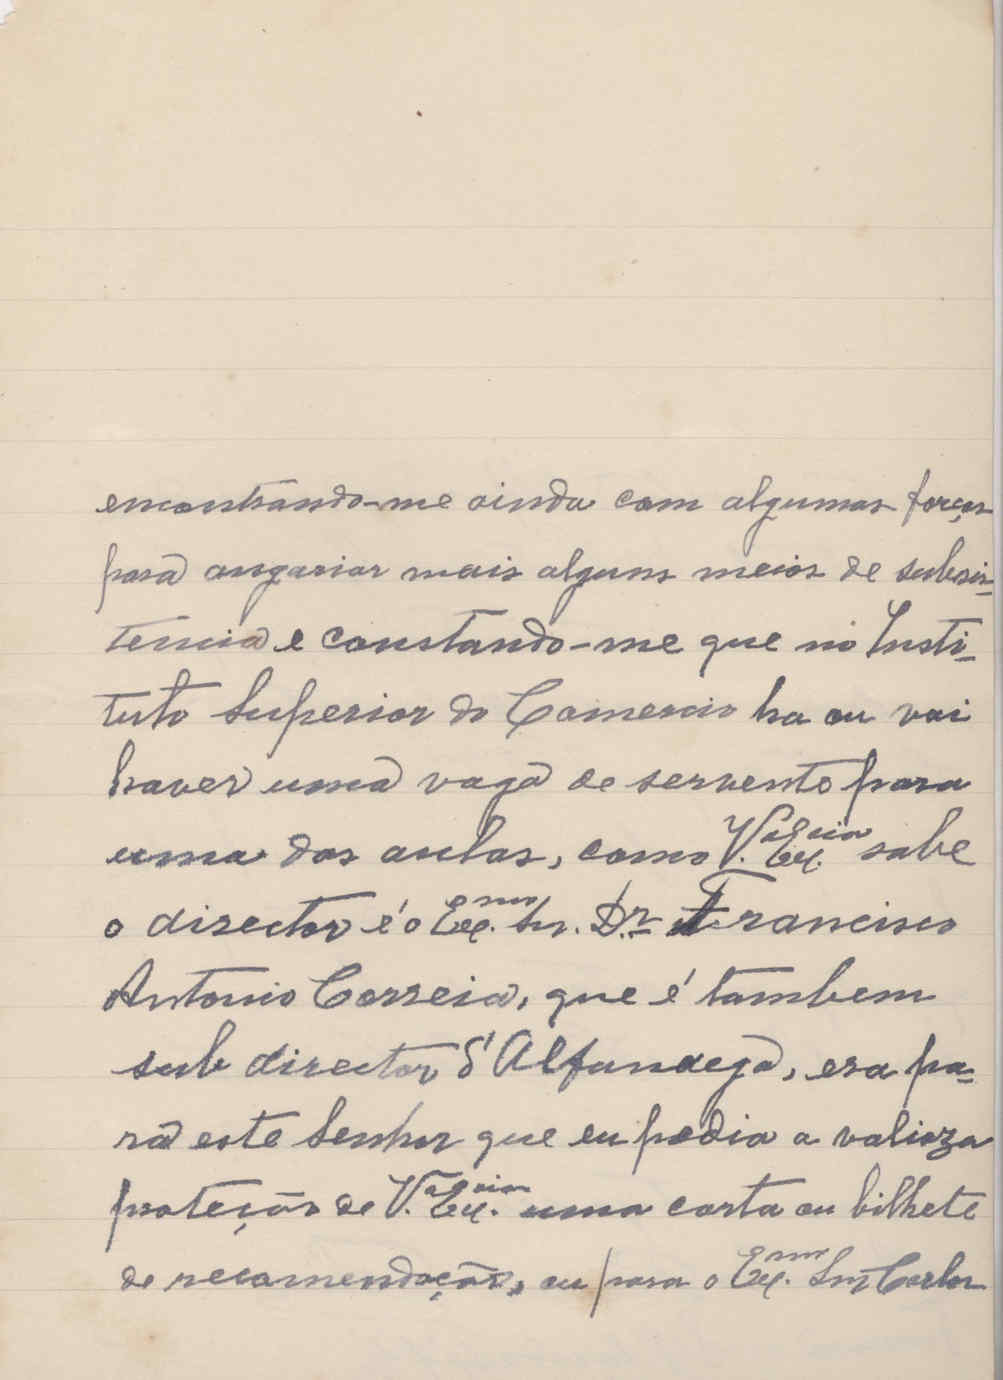 encontrando-me ainda com algumas forças
para angariar mais alguns meios de subsis-
tencia e constando-me que no Insti-
tuto Superior do Comercio ha ou vai
haver uma vaga de servente para
uma das aulas, como V.ª Ex.cia sabe
o director é o Ex.mo Sr. Dr. Francisco
Antonio Correia, que é tambem
sub director d'Alfandega, era pa-
ra este Senhor que eu pedia a valioza
proteção de V.ª Ex.cia uma carta ou bilhete
de recomendação, ou para o Ex.mo Snr Carlos